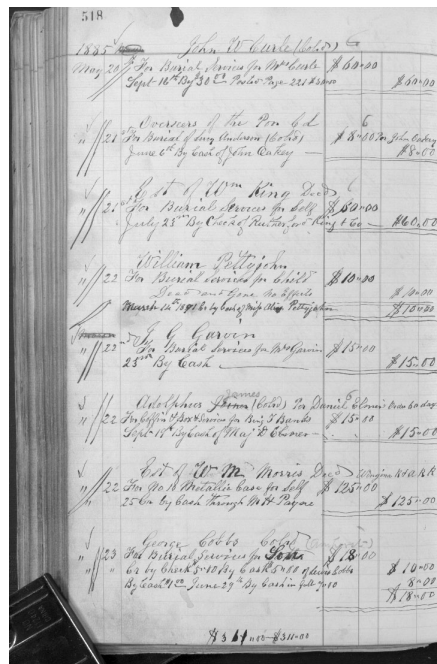 518
1885 John W Curle (Cold) 6
May 20 For Burial Services for Mrs Curle $60.00
Sept 16th By $30.00 Posted Page 221 $30.00 $60.00
Overseers of the Poor Cd 6
" 21 For Burial of Lucy Anderson (Cold) $8.00 Per John Oakey
June 6th By Cash of John Oakey $8.00
Est of Wm King Decd 6
" 21 For Burial Services for Self $60.00
July 23rd By Check of Rutherford King & Co $60.00
William Pettyjohn
" 22 For Burial Services for Child $10.00
Dead and Gone No Effects $10.00
March 14th 1891 Cr by Cash of Miss Alice Pettyjohn $10.00
J G Garvin
" 22nd For Burial Services for Mrs Garvin $15.00
23rd By Cash $15.00
James
Adolphus (Cold) Per Daniel Clover Order 60 days
" 22 For Coffin & Box & Service for Benj F Banks $15.00
Sept 19th By Cash of Maj D Clover $15.00
Est of W M Morris Decd
" 22 For No 18 Metallic Case for Self $125.00
25 Cr by Cash Through M H Payne $125.00
George Cobbs Cold
" 23 For Burial Services for $18.00
" Cr by Check 5.00 By Cash 5.00 of Lewis Cobbs $10.00
By Cash June 29th By Cash in full 8.00
$18.00
$311.00 $311.00